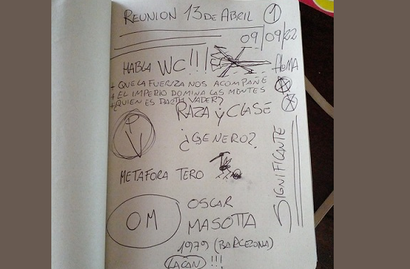 REUNION 13 DE ABRIL 1
09/09/02
HABLA WC!!!
+ QUE LA FUERZA NOS ACOMPAÑE
+ EL IMPERIO DOMINA LAS MENTES
+ QUIEN ES DARTH VADER?
RAZA Y CLASE
¿GENERO?
METAFORA TERO
SIGNIFICANTE
OM
OSCAR
MASOTTA
1979 (BARCELONA)
LACAN !!!